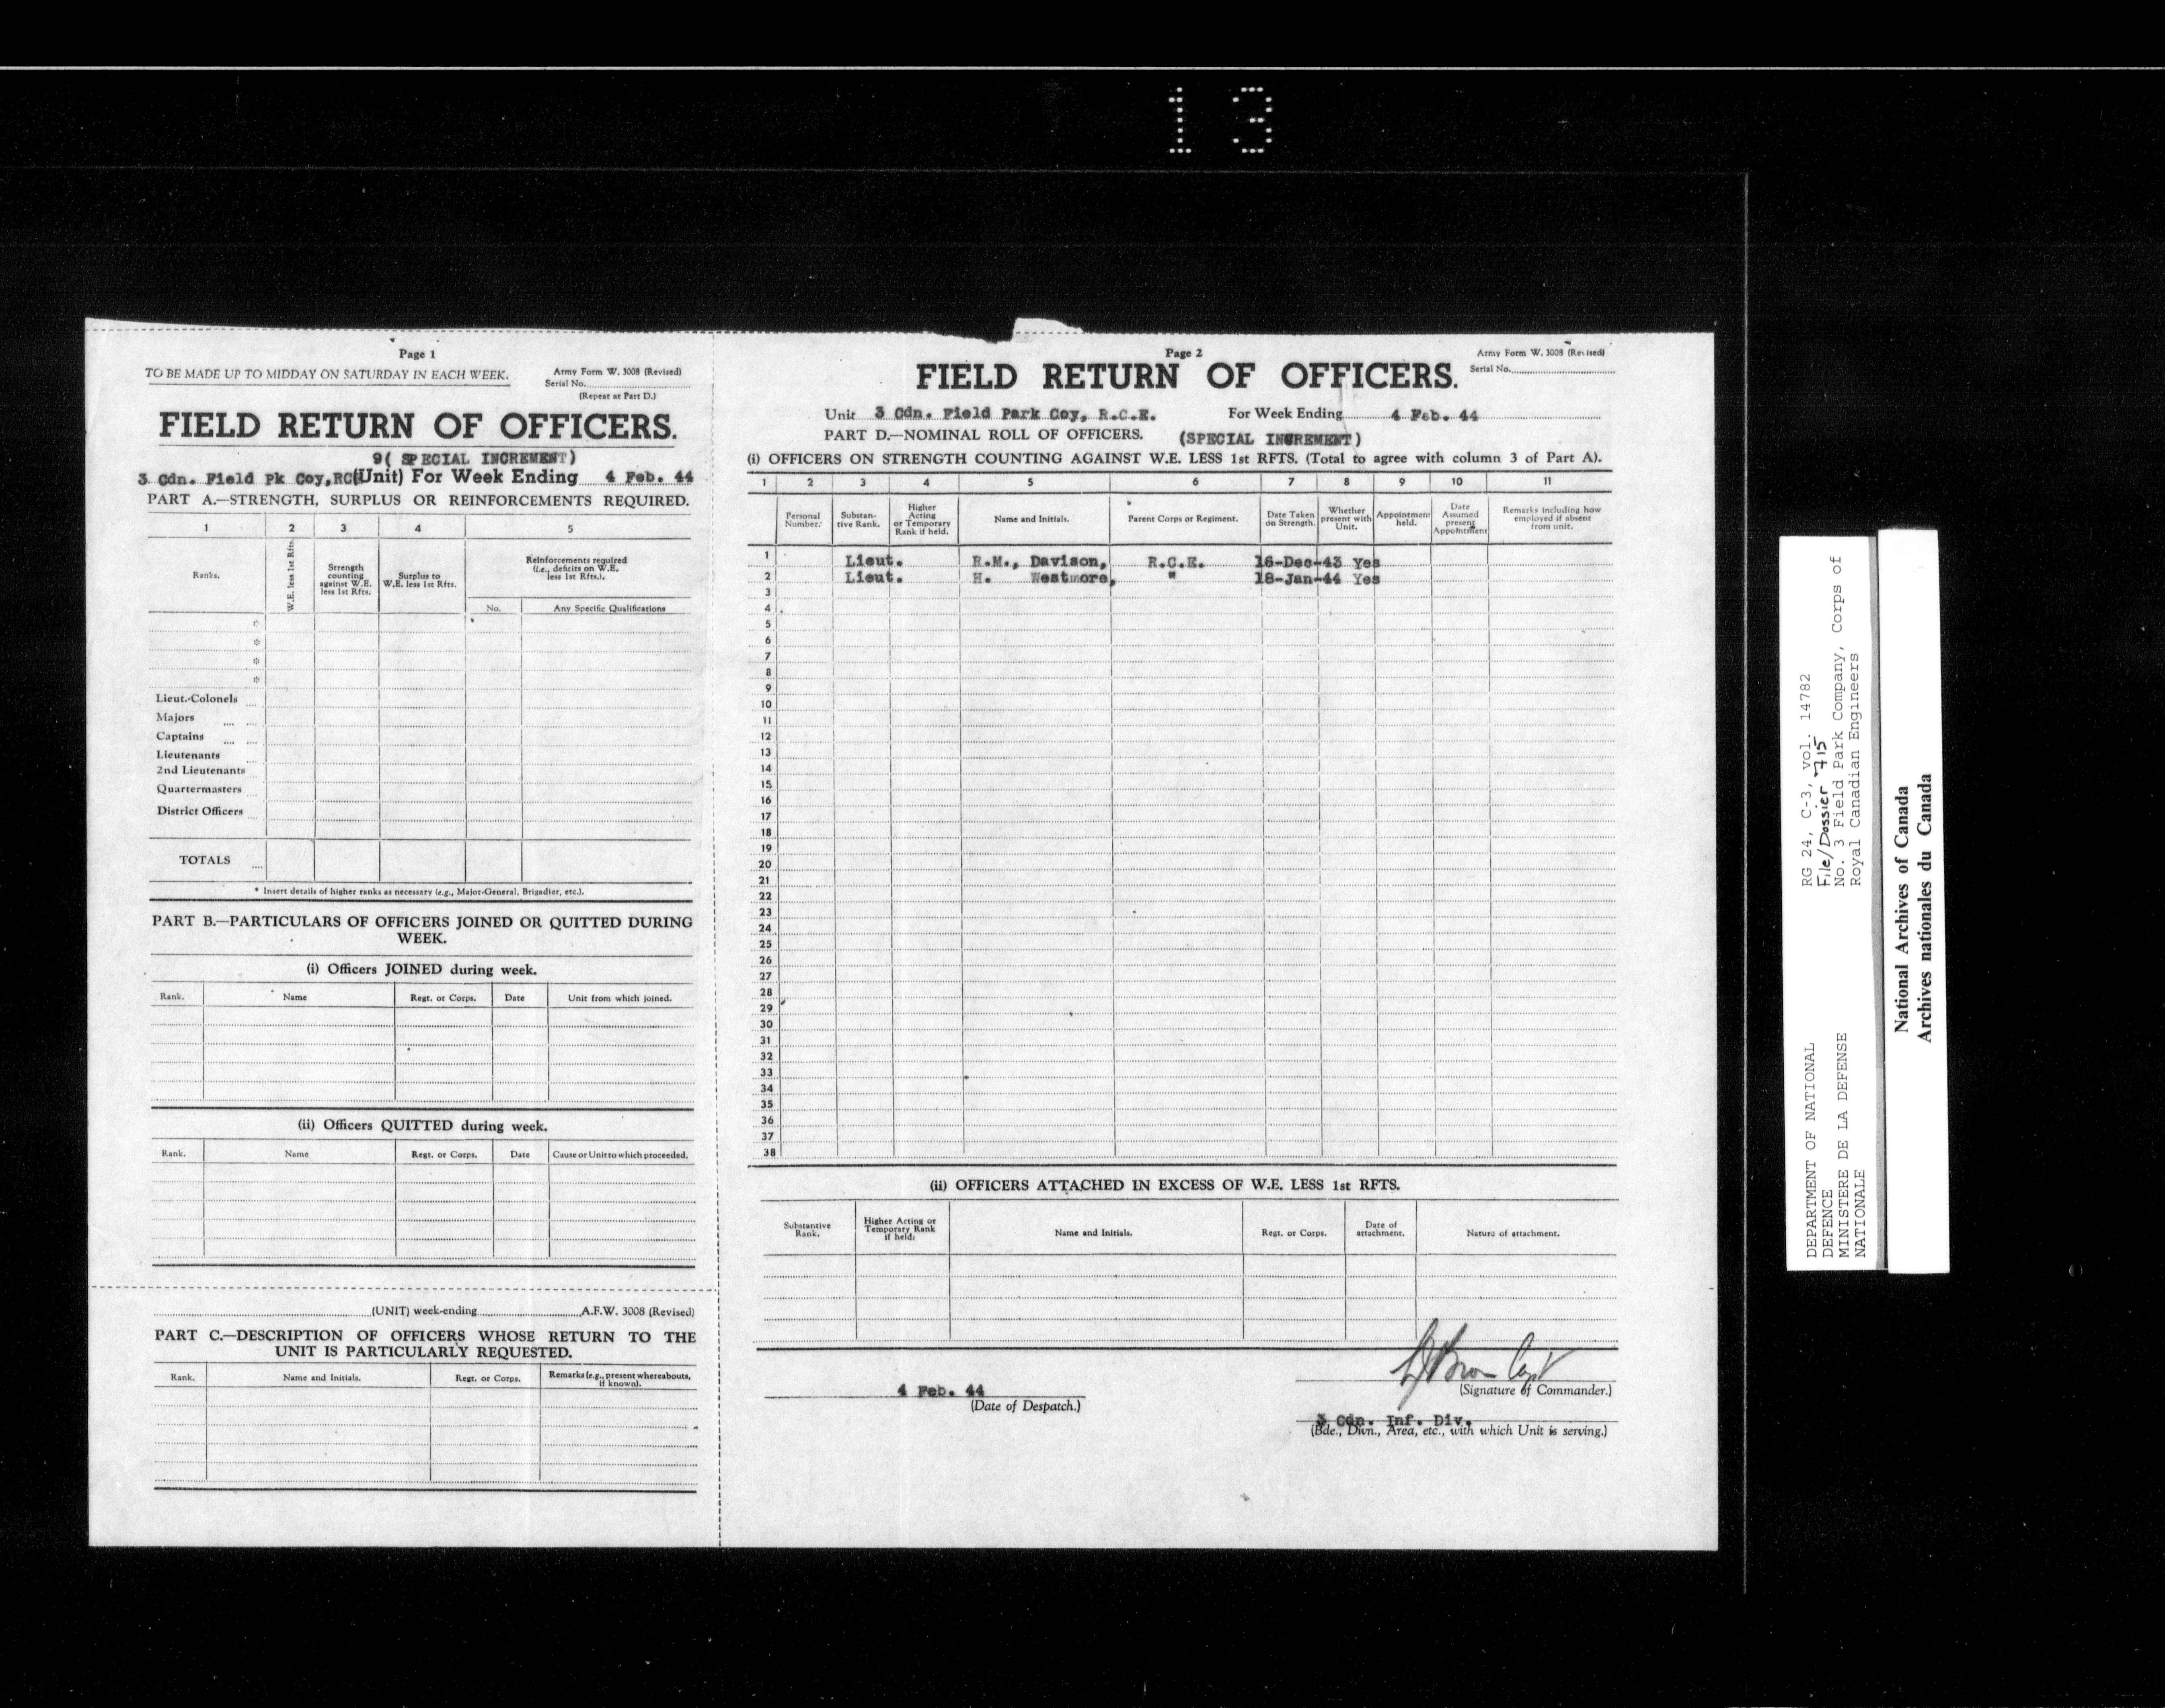 13
Page 1
TO BE MADE UP TO MIDDAY ON SATURDAY IN EACH WEEK.
Army Form W. 3008 (Revised)
Serial No.
(Repeat at Part D.)
FIELD RETURN OF OFFICERS.
9( SPECIAL INCREMENT)
3 Cdn. Field Pk Coy,RC(Unit) For Week Ending 4 Feb. 44
PART A.—STRENGTH, SURPLUS OR REINFORCEMENTS REQUIRED.
1 2 3 4 5
Ranks.
W.E. less 1st Rfts.
Strength counting against W.E. less 1st Rfts.
Surplus to W.E. less 1st Rfts.
Reinforcements required (i.e., deficits on W.E. less 1st Rfts.).
No. Any Specific Qualifications
*
*
*
*
Lieut.-Colonels
Majors
Captains
Lieutenants
2nd Lieutenants
Quartermasters
District Officers
TOTALS
* Insert details of higher ranks as necessary (e.g., Major-General, Brigadier, etc.).
PART B.—PARTICULARS OF OFFICERS JOINED OR QUITTED DURING
WEEK.
(i) Officers JOINED during week.
Rank. Name Regt. or Corps. Date Unit from which joined.
(ii) Officers QUITTED during week.
Rank. Name Regt. or Corps. Date Cause or Unit to which proceeded.
(UNIT) week-ending A.F.W. 3008 (Revised)
PART C.—DESCRIPTION OF OFFICERS WHOSE RETURN TO THE
UNIT IS PARTICULARLY REQUESTED.
Rank. Name and Initials. Regt. or Corps. Remarks (e.g., present whereabouts, if known).
Page 2
Army Form W. 3008 (Revised)
Serial No.
FIELD RETURN OF OFFICERS.
Unit 3 Cdn. Field Park Coy, R.C.E. For Week Ending 4 Feb. 44
PART D.—NOMINAL ROLL OF OFFICERS. (SPECIAL INCREMENT)
(i) OFFICERS ON STRENGTH COUNTING AGAINST W.E. LESS 1st RFTS. (Total to agree with column 3 of Part A).
1 2 3 4 5 6 7 8 9 10 11
Personal Number.
Substantive Rank.
Higher Acting or Temporary Rank if held.
Name and Initials.
Parent Corps or Regiment.
Date Taken on Strength.
Whether present with Unit.
Appointment held.
Date Assumed present Appointment
Remarks including how employed if absent from unit.
1 Lieut. R.M., Davison, R.C.E. 16-Dec-43 Yes
2 Lieut. H. Westmore, " 18-Jan-44 Yes
3
4
5
6
7
8
9
10
11
12
13
14
15
16
17
18
19
20
21
22
23
24
25
26
27
28
29
30
31
32
33
34
35
36
37
38
(ii) OFFICERS ATTACHED IN EXCESS OF W.E. LESS 1st RFTS.
Substantive Rank.
Higher Acting or Temporary Rank if held:
Name and Initials.
Regt. or Corps.
Date of attachment.
Nature of attachment.
Capt
(Signature of Commander.)
4 Feb. 44
(Date of Despatch.)
3 Cdn. Inf. Div.
(Bde., Divn., Area, etc., with which Unit is serving.)
DEPARTMENT OF NATIONAL
DEFENCE
MINISTERE DE LA DEFENSE
NATIONALE
RG 24, C-3, vol. 14782
File/Dossier 715
No. 3 Field Park Company, Corps of
Royal Canadian Engineers
National Archives of Canada
Archives nationales du Canada